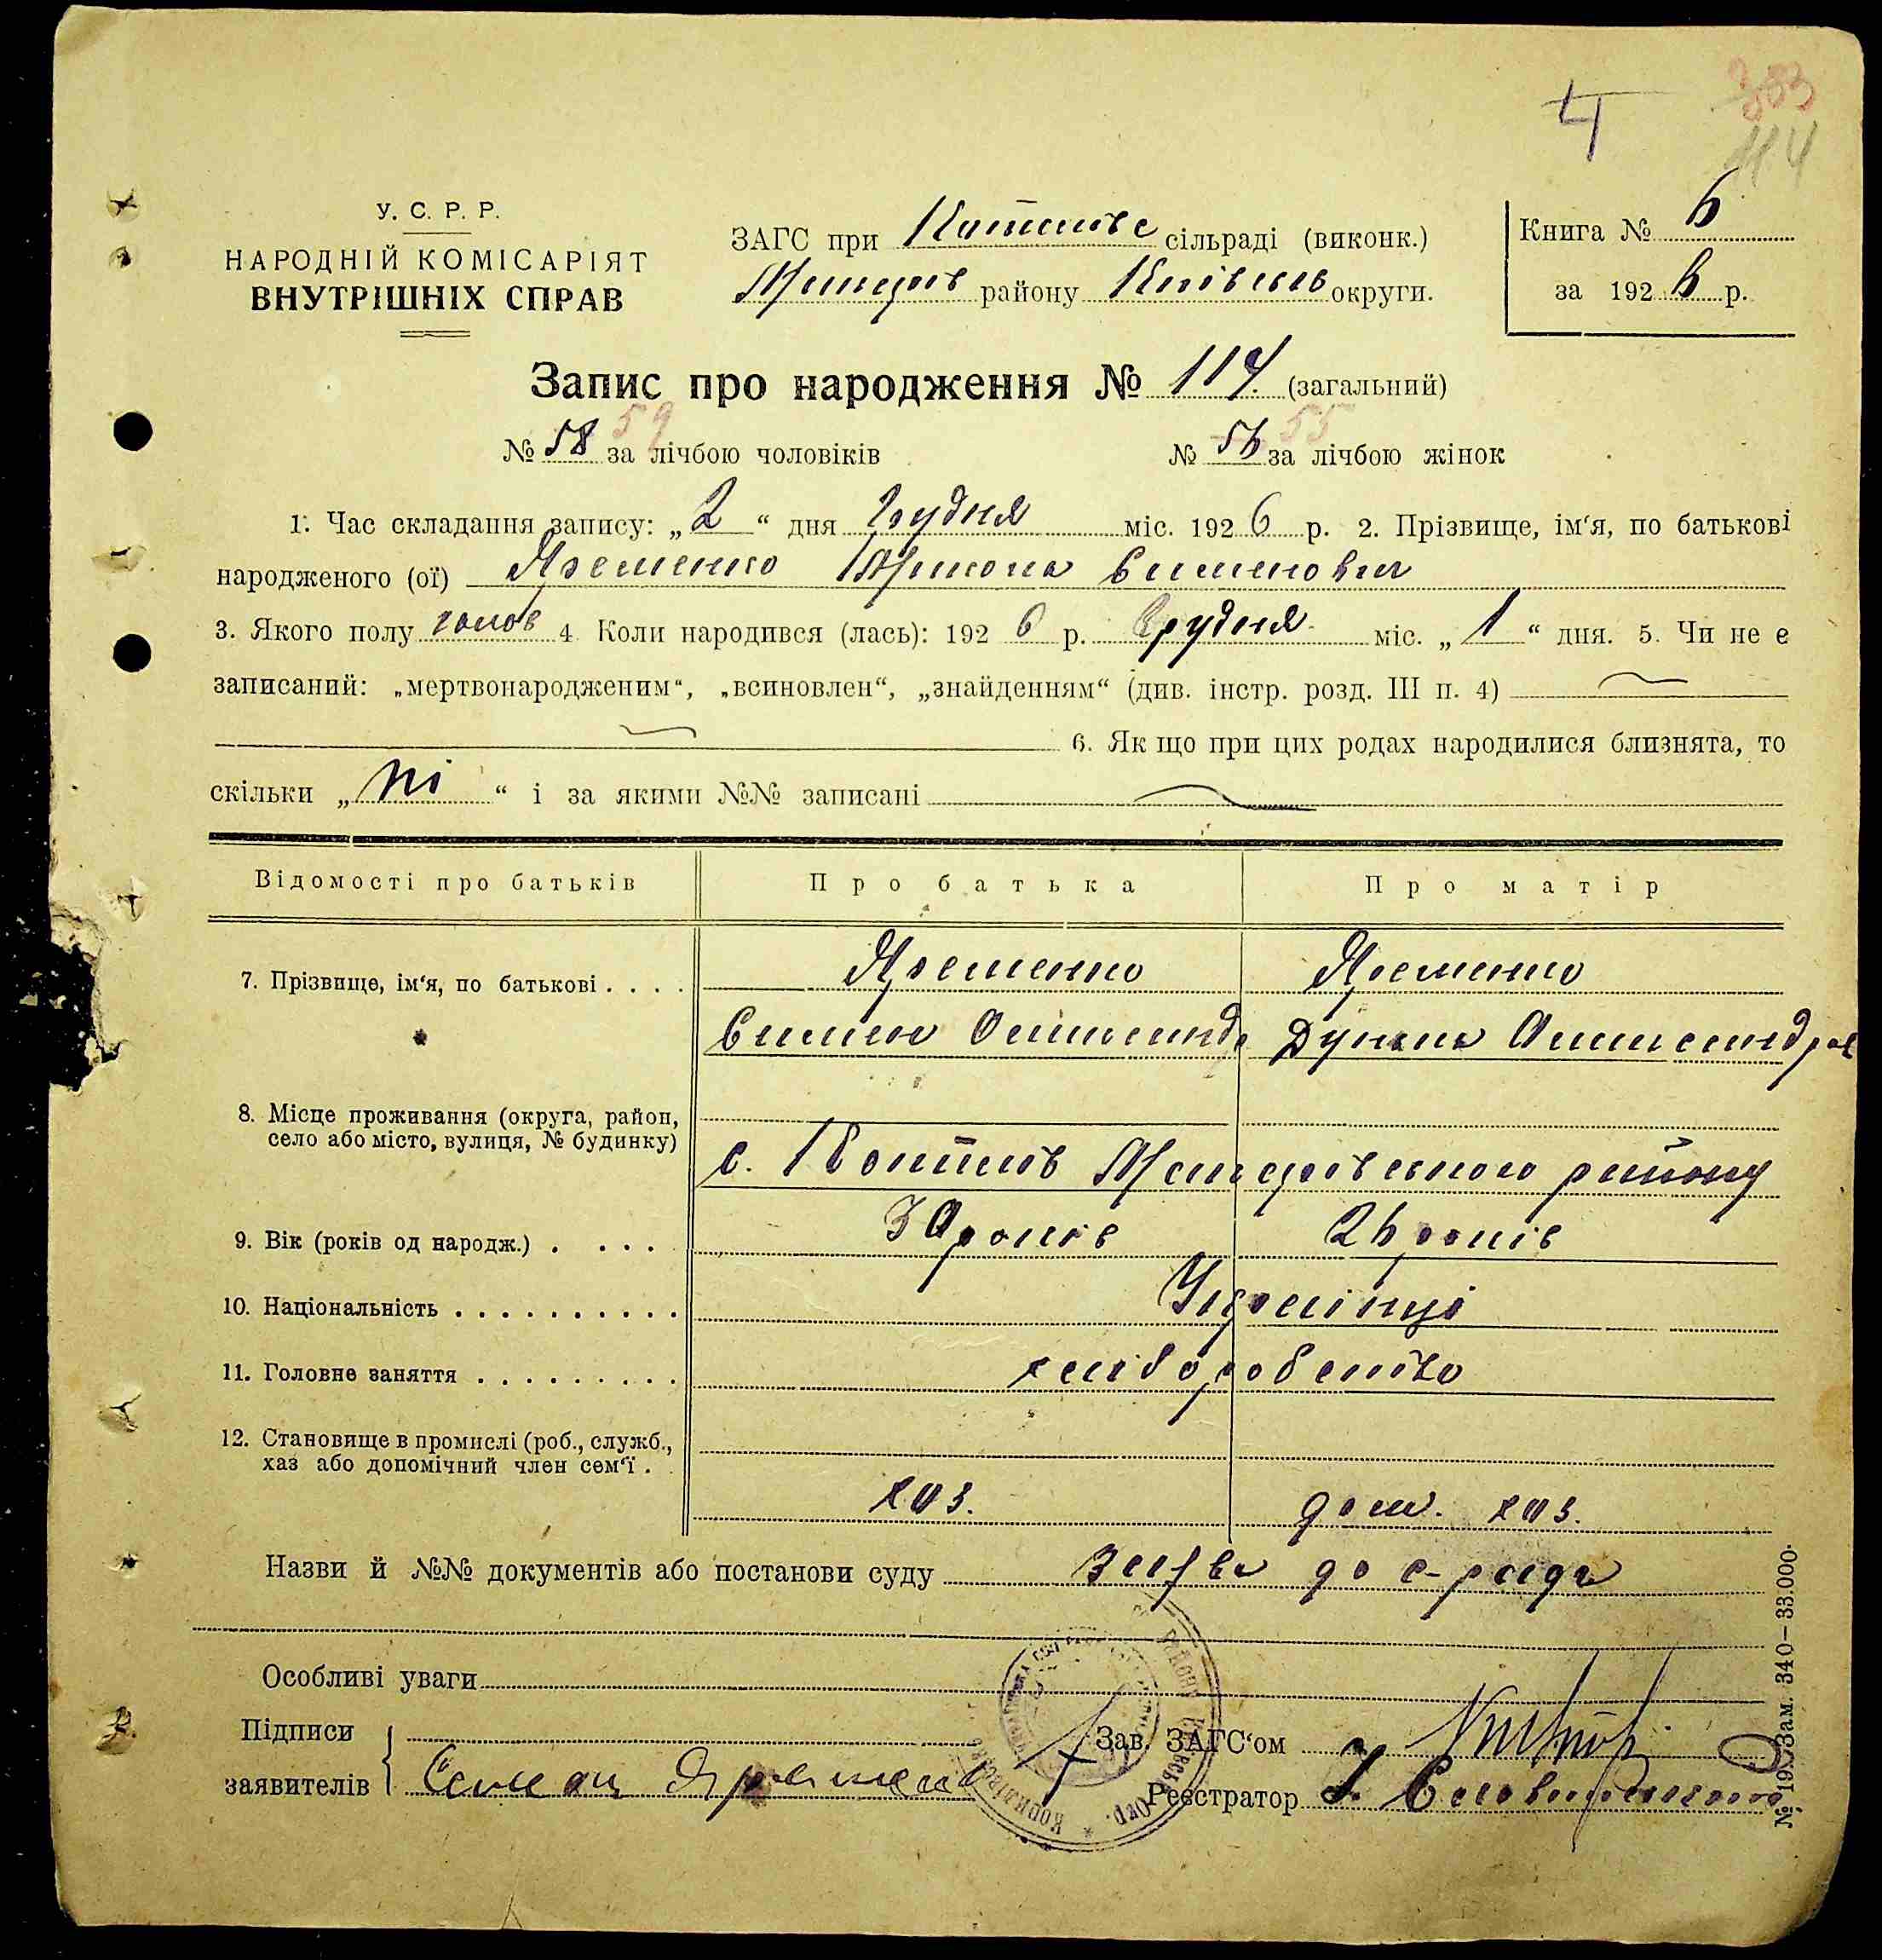 4
333
114
У. С. Р. Р.
НАРОДНІЙ КОМІСАРІЯТ
ВНУТРІШНІХ СПРАВ
ЗАГС при сільраді (виконк.)
району округи.
Книга № 6
за 1926 р.
Запис про народження № 114. (загальний)
№ 58 59 за лічбою чоловіків
№ 56 55 за лічбою жінок
1. Час складання запису: „2“ дня Грудня міс. 1926 р. 2. Прізвище, ім‘я, по батькові
народженого (ої) Яременко Семенович
3. Якого полу чолов 4. Коли народився (лась): 1926 р. Грудня міс. „1“ дня. 5. Чи не є
записаний: „мертвонародженим“, „всиновлен“, „знайденням“ (див. інстр. розд. III п. 4)
6. Як що при цих родах народилися близнята, то
скільки „ні“ і за якими №№ записані
Відомості про батьків Про батька Про матір
7. Прізвище, ім‘я, по батькові . . . . Яременко Яременко
Семен Олександр
8. Місце проживання (округа, район,
село або місто, вулиця, № будинку)
с. району
9. Вік (років од народж.) . . . . 30 років 26 років
10. Національність . . . . . . . . . . Українці
11. Головне заняття . . . . . . . . . хліборобство
12. Становище в промислі (роб., служб.,
хаз або допомічний член сем‘ї . .
хаз. дом. хаз.
Назви й №№ документів або постанови суду заява до с-ради
Особливі уваги
Підписи
заявителів
Семен Яременко
Зав. ЗАГС‘ом
Реєстратор
№ 19. Зам. 340–33.000.